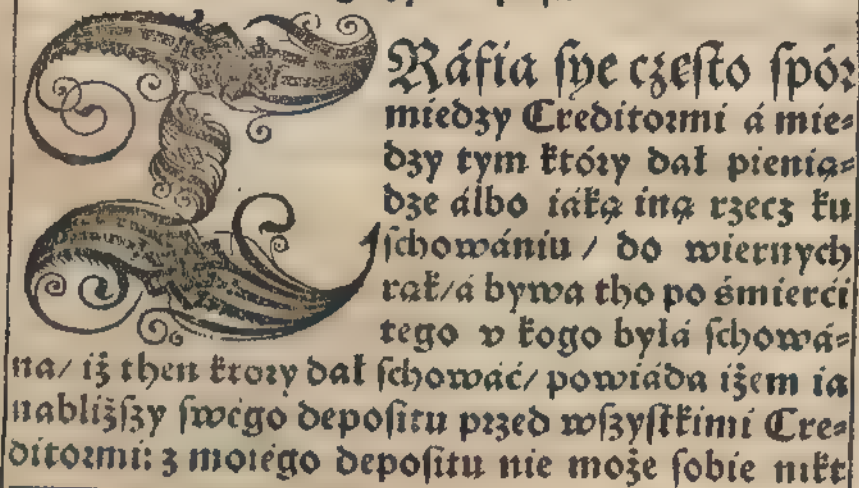 TRáfia ſye częſto ſpór
miedzy Creditormi á mie⸗
dzy tym który dał pienią⸗
dze álbo iáką iną rzecz ku
ſchowániu / do wiernych
rak/á bywa tho po śmierći
tego v kogo byłá ſchowá⸗
na/ iż then ktory dał ſchowáć/ powiáda iżem ia
nabliżſzy ſwégo depoſitu przed wſzyſtkimi Cre⸗
ditormi: z moiégo depoſitu nie może ſobie nikt